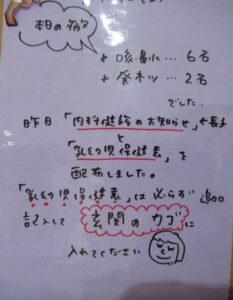 本日の病欠
* 咳・鼻水… 6名
* 発ネツ… 2名
でした。
昨日「内科健診のお知らせ」
と
「乳幼児保健表」を
配布しました。
「乳幼児保健表」は必らず
記入して 玄関の カゴ に
入れてください